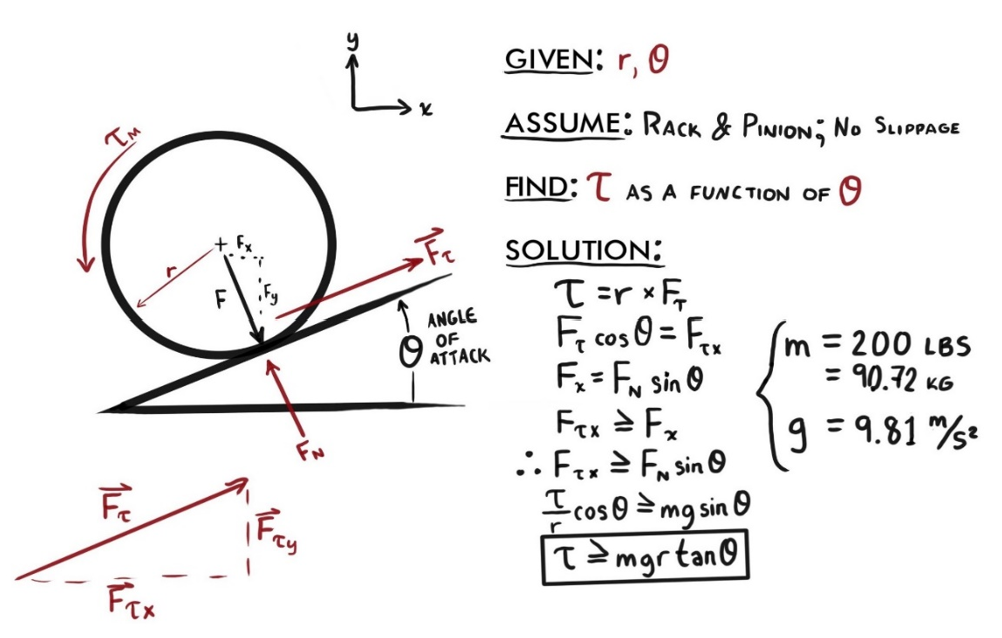 y
x
τM
r
Fx
F
Fy
F⃗τ
θ
ANGLE
OF
ATTACK
FN
F⃗τ
F⃗τy
F⃗τx
GIVEN: r, θ
ASSUME: RACK & PINION; NO SLIPPAGE
FIND: τ AS A FUNCTION OF θ
SOLUTION:
τ = r × Fτ
Fτ cos θ = Fτx
Fx = FN sin θ
Fτx ≥ Fx
∴ Fτx ≥ FN sin θ
τ/r cos θ ≥ mg sin θ
τ ≥ mgr tan θ
m = 200 LBS
= 90.72 KG
g = 9.81 m/s²